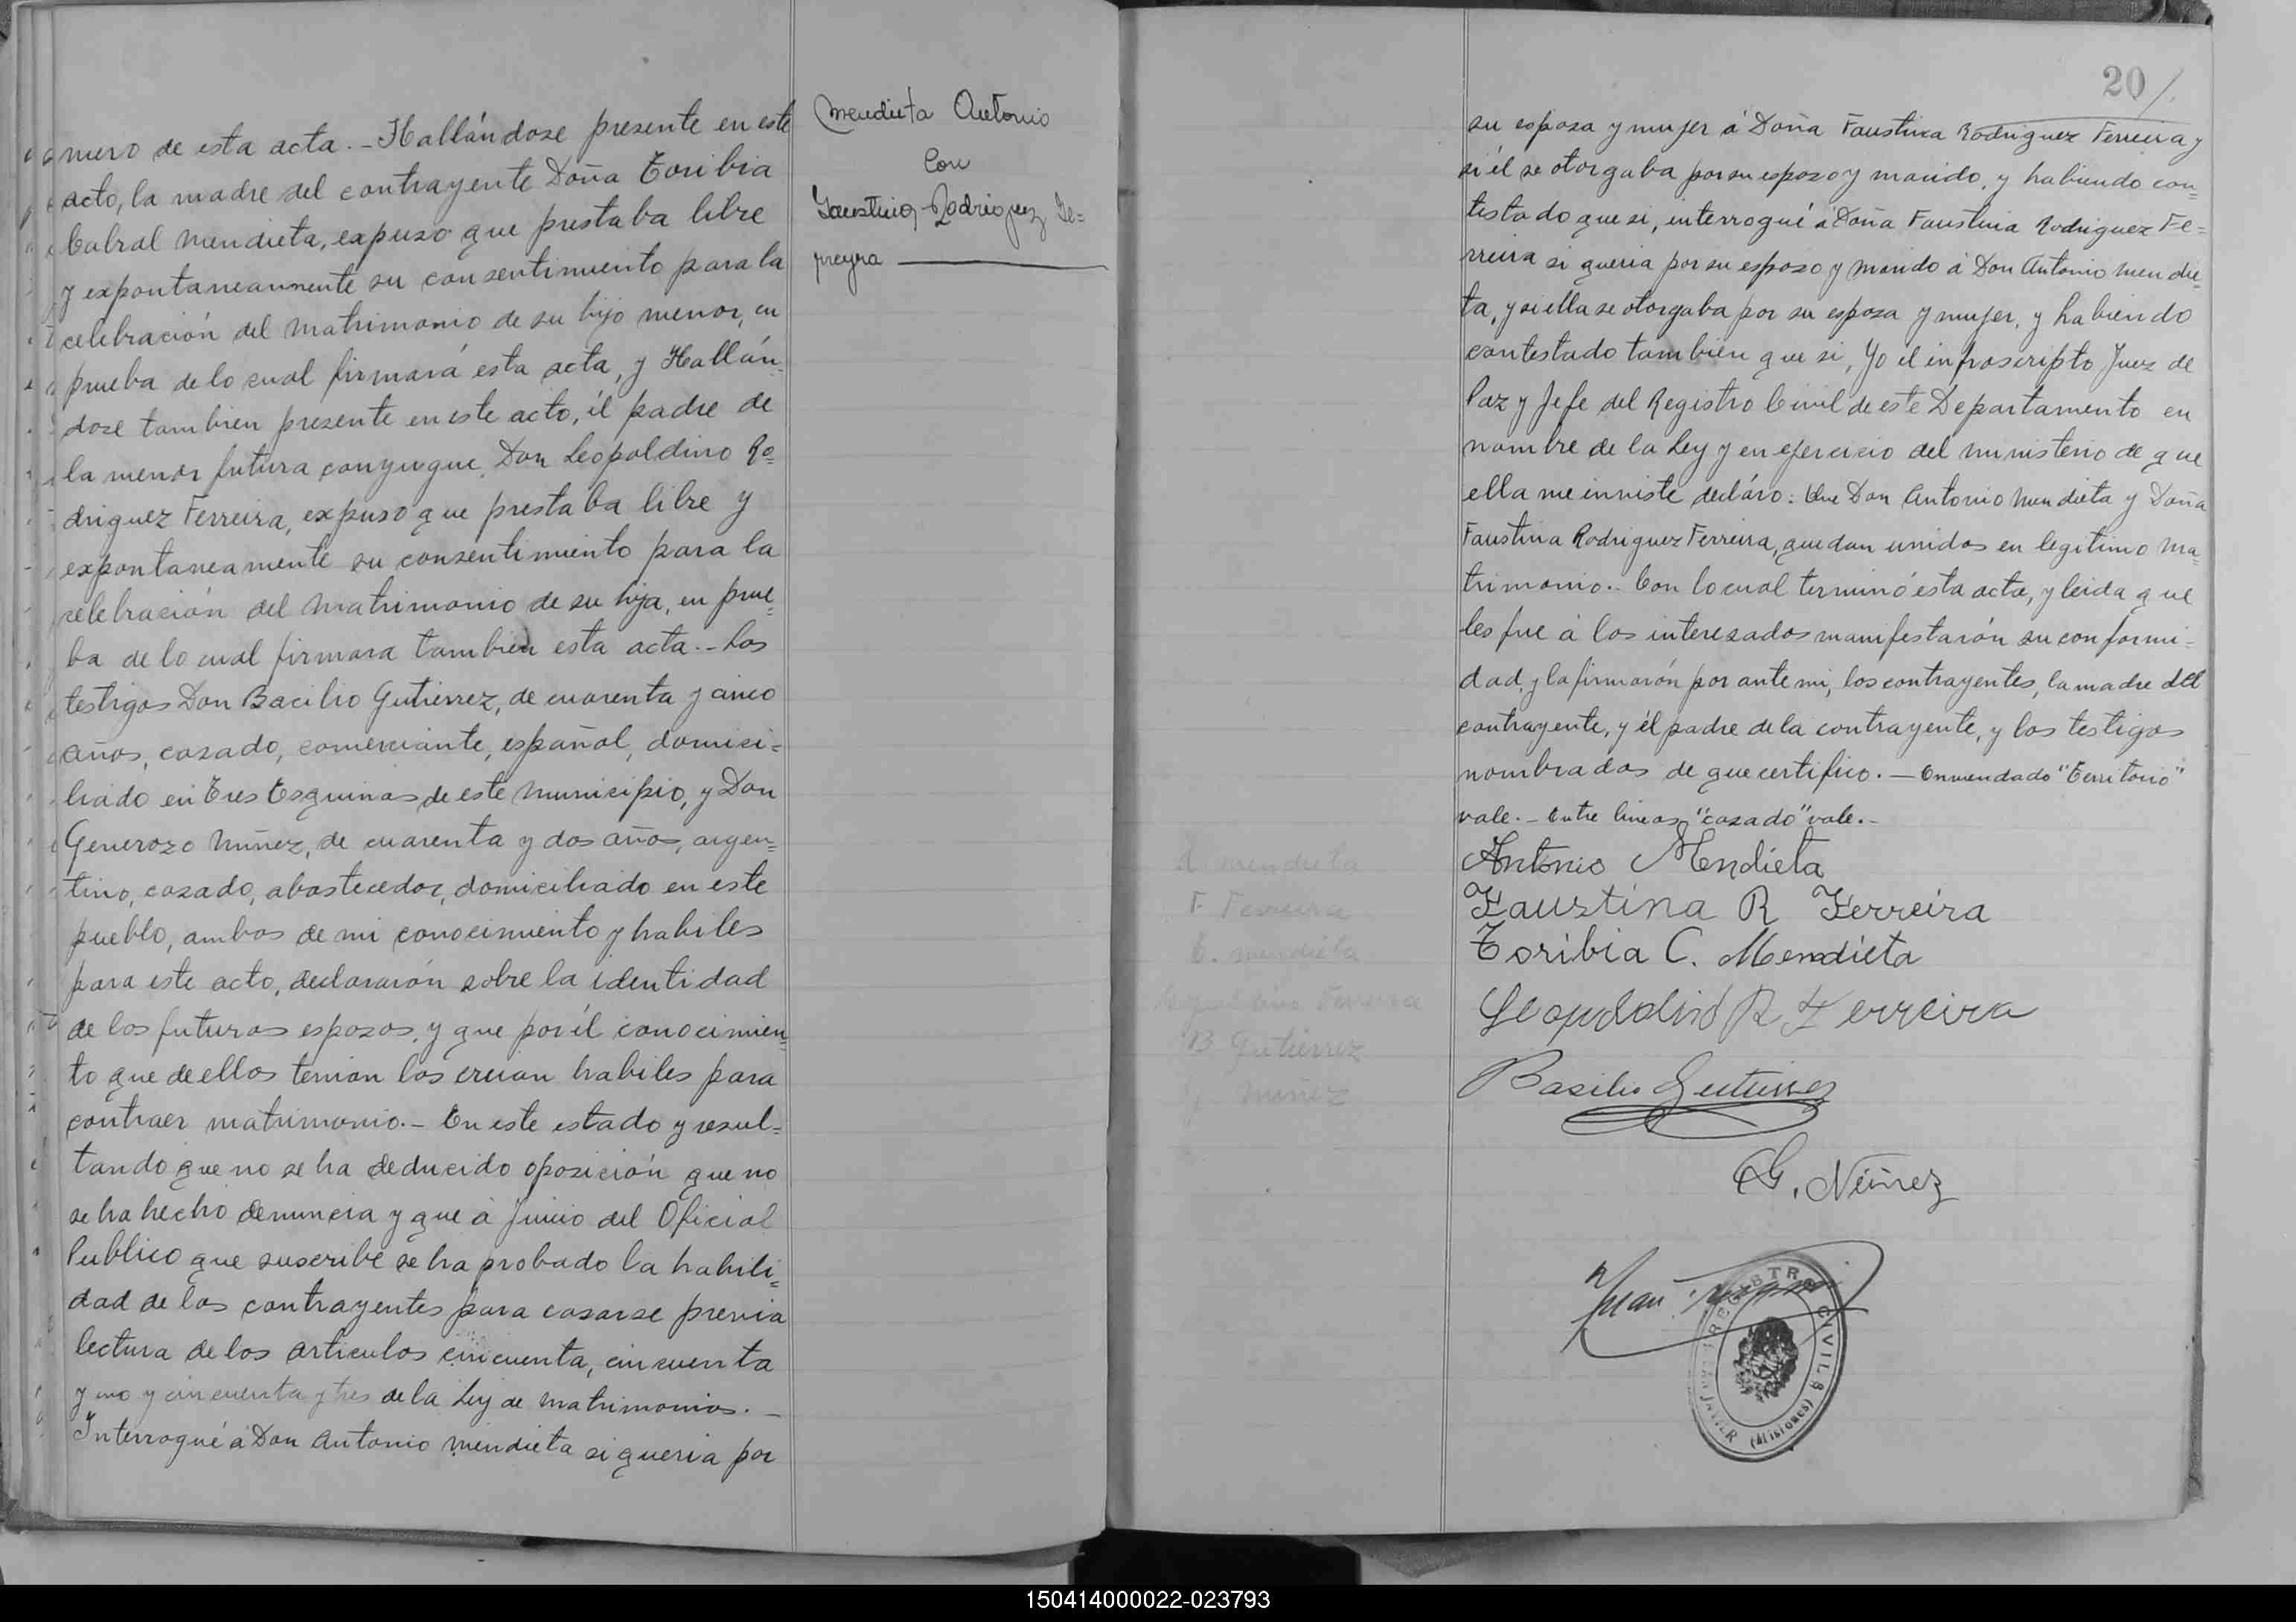 mero de esta acta.- Hallándose presente en este
acto, la madre del contrayente Doña Toribia
Cabral Mendieta, expuso que prestaba libre
y expontaneamnente su consentimiento para la
celebración del matrimonio de su hijo menor, en
prueba de lo cual firmará esta acta, y Hallán-
dose tambien presente en este acto, él padre de
la menor futura conyugue, Don Leopoldino Ro=
driguez Ferreira, expuso que prestaba libre y
expontaneamente su consentimiento para la
celebración del matrimonio de su hija, en prue=
ba de lo cual firmara tambien esta acta.- Los
testigos Don Bacilio Gutierrez, de cuarenta y cinco
años, casado, comerciante, español, domici=
liado en Tres Esquinas de este Municipio, y Don
Generozo Nuñez, de cuarenta y dos años, argen=
tino, casado, abastecedor, domiciliado en este
pueblo, ambos de mi conocimiento y habiles
para este acto, declararón sobre la identidad
de los futuros esposos, y que por él conocimien=
to que de ellos tenian los creian habiles para
contraer matrimonio.- En este estado y resul=
tando que no se ha deducido oposición que no
se ha hecho denuncia y que á juicio del Oficial
Publico que suscribe se ha probado la habili=
dad de los contrayentes para casarse previa
lectura de los articulos cincuenta, cincuenta
y uno y cincuenta y tres de la Ley de matrimonios.-
Interrogué á Don Antonio Mendieta si queria por
Mendieta Antonio
Con
Faustina Rodriguez Fe=
rreyra
20
su esposa y mujer á Doña Faustina Rodriguez Ferreira y
si él se otorgaba por su esposo y marido, y habiendo con=
testado que si, interrogué á Doña Faustina Rodriguez Fe=
rreira si queria por su esposo y marido á Don Antonio Mendie=
ta, y si ella se otorgaba por su esposa y mujer, y habiendo
contestado tambien que si, Yo el infrascripto Juez de
Paz y Jefe del Registro Civil de este Departamento en
nombre de la Ley y en ejercicio del ministerio de que
ella me inviste decláro: Que Don Antonio Mendieta y Doña
Faustina Rodriguez Ferreira, quedan unidos en legitimo ma=
trimonio.- Con lo cual terminó esta acta, y leida que
les fue á los interesados manifestarón su conformi=
dad, y la firmarón por ante mi, los contrayentes, la madre del
contrayente, y él padre de la contrayente, y los testigos
nombrados de que certifico.- Enmendado "Territorio"
vale.- Entre lineas "casado" vale.-
A Mendieta
F Ferreira
T. Mendieta
Leopoldino Ferreira
B Gutierrez
Nuñez
Antonio Mendieta
Faustina R Ferreira
Toribia C. Mendieta
Leopoldino R Ferreira
Basilio Gutierrez
G. Núñez
Juan
REGISTRO CIVIL
JAVIER (MISIONES)
150414000022-023793